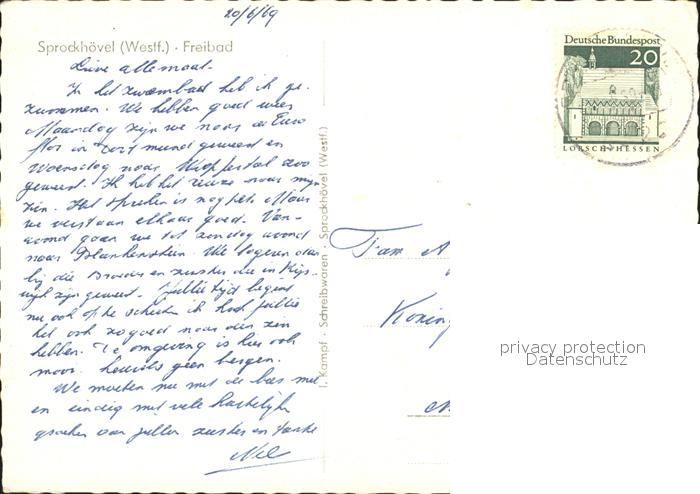 20/6/69
Sprockhövel (Westf.) · Freibad
Lieve allemaal.
In het zwembad heb ik ge-
zwommen. We hebben goed weer
Maandag zijn we naar de Euro
flor in Dortmund geweest en
Woensdag naar Wuppertal zoo
geweest. Ik heb het reuze naar mijn
zin. Het spreken is nog Maar
we verstaan elkaar goed. Van-
avond gaan we tot zondag avond
naar Blankenstein. We logeren dan
bij die broeder en zuster die in Rijs-
wijk zijn geweest. Jullie tijd begint
nu ook op te schieten ik hoop jullie
het ook zo goed naar den zin
hebben. De omgeving is hier ook
mooi. geen bergen.
We moeten nu met de bus mee
en eindig met vele hartelijke
groeten van jullie zuster en tante
Nel
I. Kampf · Schreibwaren · Sprockhövel (Westf.)
Deutsche Bundespost
20
LORSCH · HESSEN
Fam A
Koning
privacy protection
Datenschutz